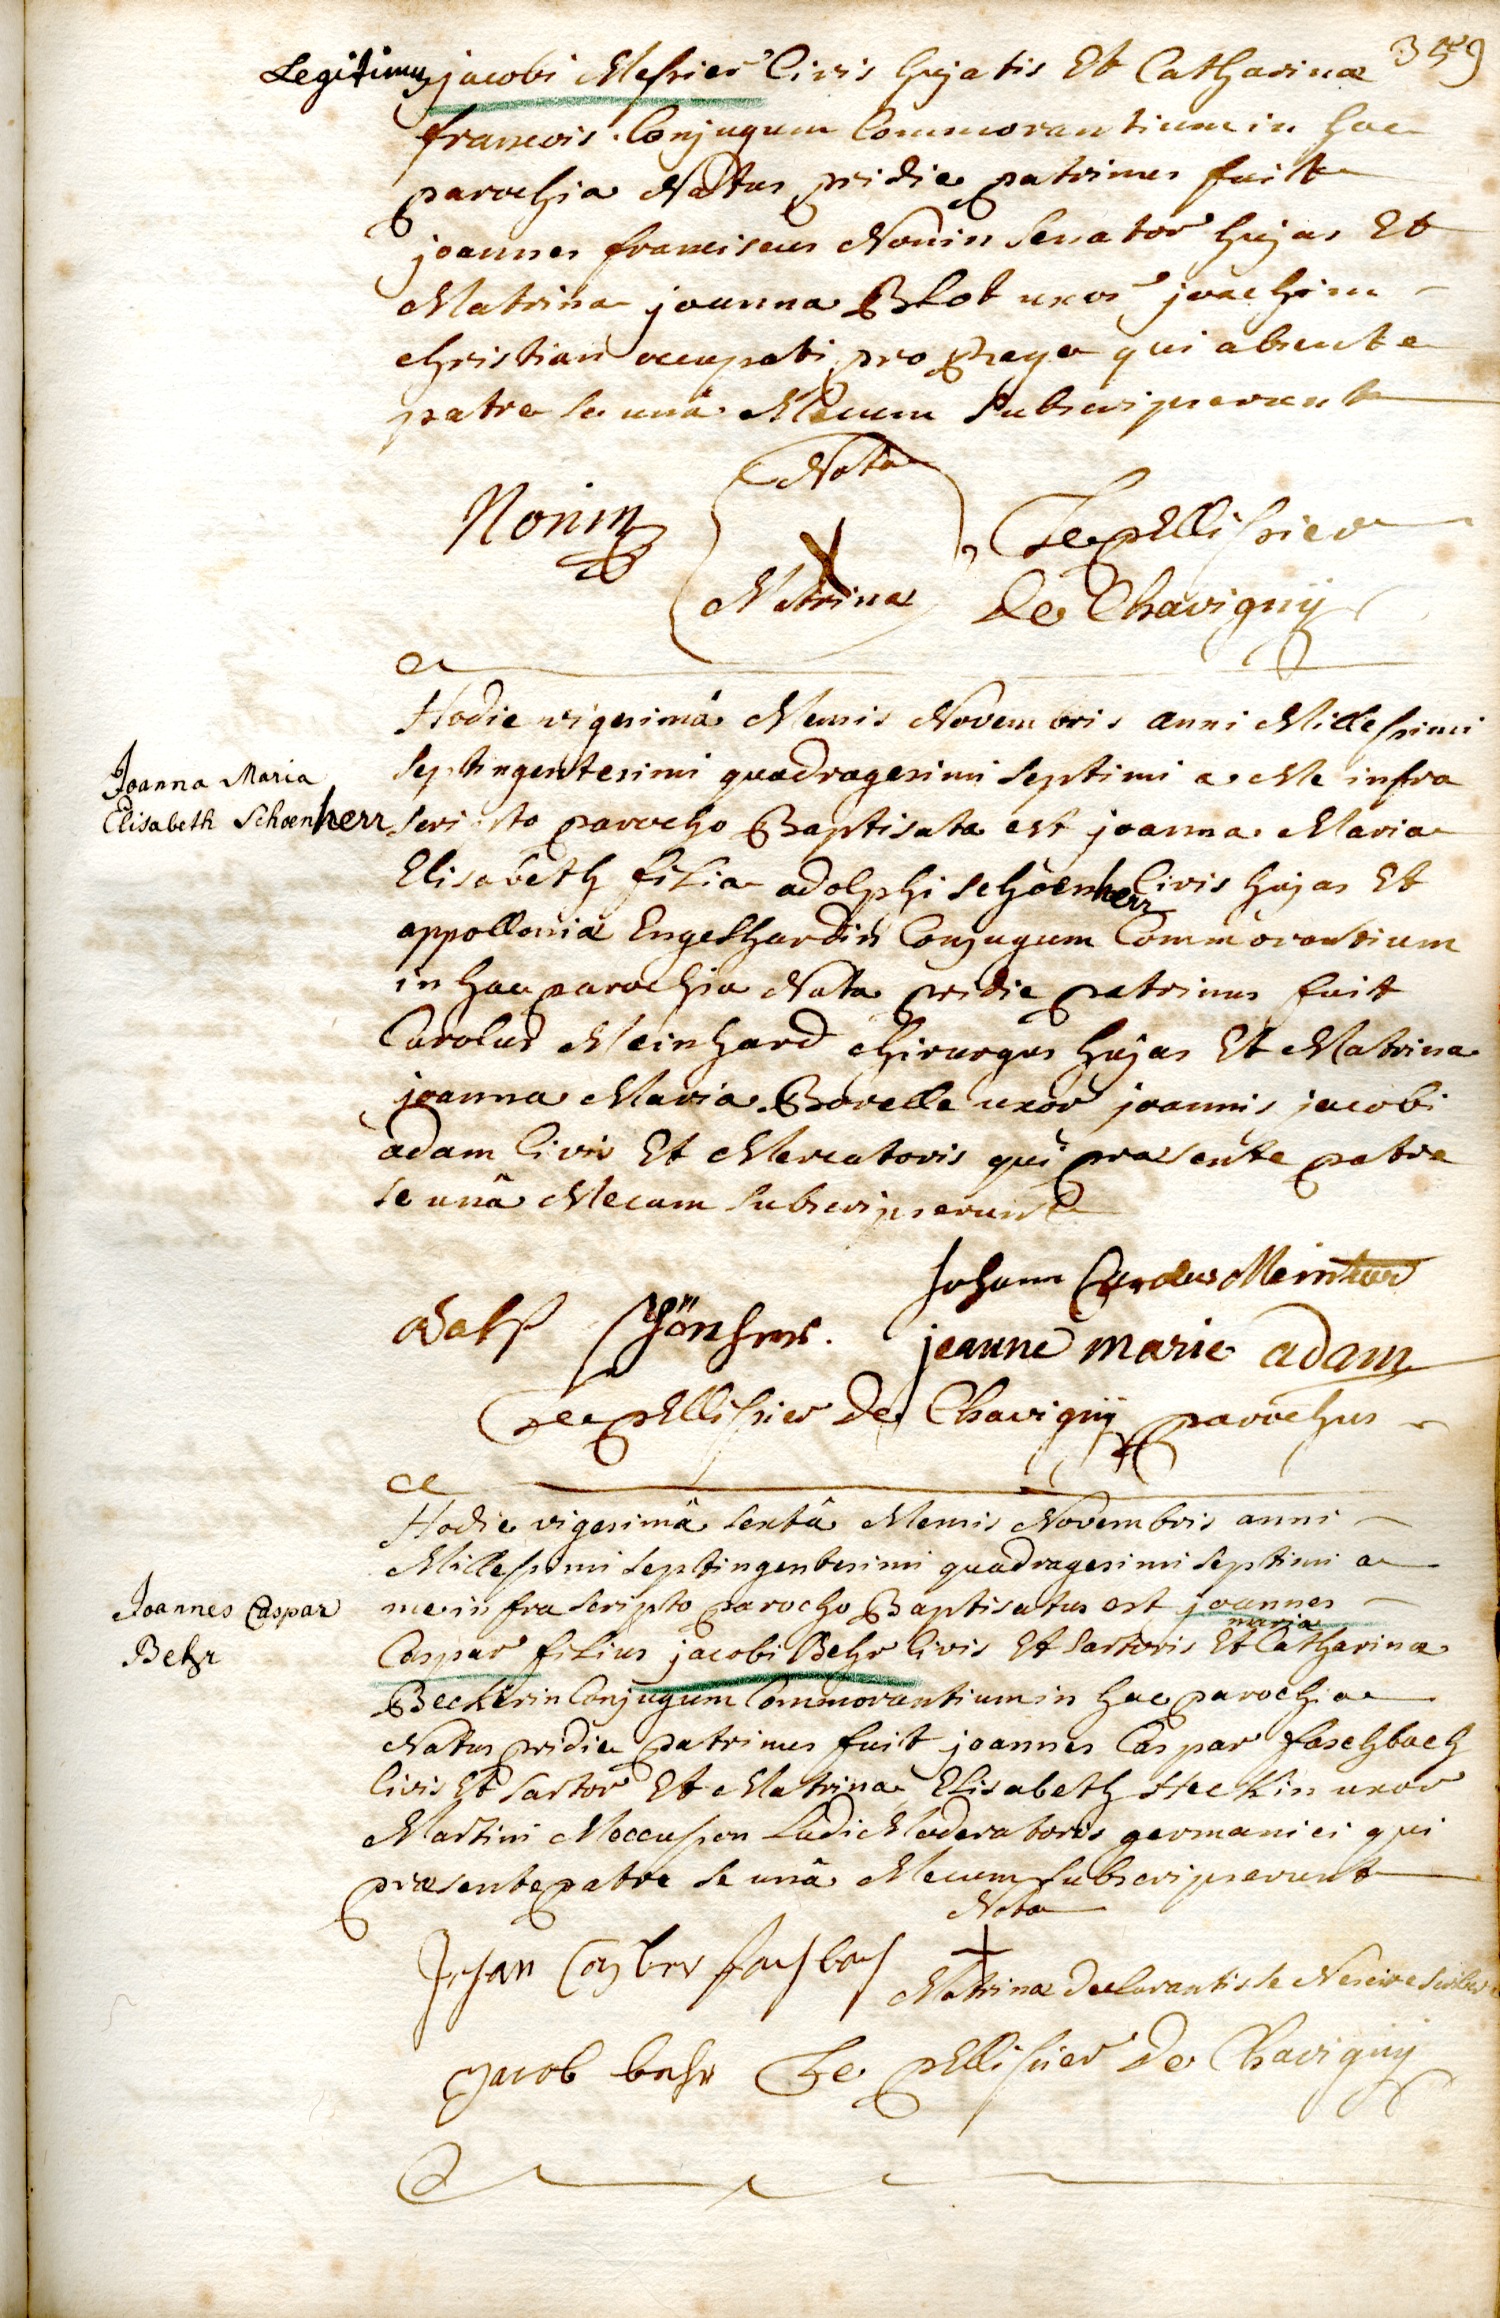 359
Legitimus jacobi Messier Civis hujatis Et Catharinæ
francois Conjugum Commorantium in hac
parochia Natus pridie patrinus fuit
joannes franciscus Nonin Senator hujas Et
Matrina joanna Blot uxor joachim
christian occupati pro Rege qui absente
patre se unâ Mecum Subscripserunt
Nota
Nonin
Matrinæ
Le pellissier
De Chavignÿ
Hodie vigesimâ Mensis Novembris anni Millessimi
Septingentesimi quadragesimi Septimi a Me infra
Joanna Maria
Elisabeth Schoenherr
scripto parocho Baptisata est joanna Maria
Elisabeth filia adolphi schöenherr Civis hujas Et
appolloniæ Engelhardin Conjugum Commorantium
in hac parochia Nata pridie patrinus fuit
Carolus Meinhard chirurgus hujas Et Matrina
joanna Maria Borelle uxor joannis jacobi
adam Civis Et Mercatoris qui præsente patre
se unâ Mecum Subscripserunt
Johann Carolus Meinhard
Schönherr.
jeanne marie adam
Le pellissier De Chavignÿ parochus
Hodie vigesimâ sextâ Mensis Novembris anni
Millessimi septingentesimi quadragesimi septimi a
Joannes Caspar
Behr
me infra scripto parocho Baptisatus est joannes
Caspar filius jacobi Behr Civis Et Sartoris Et maria Catharinæ
Beckerin Conjugum Commorantium in hac parochia
Natus pridie patrinus fuit joannes Caspar faschbach
Civis Et Sartor Et Matrina Elisabeth Heckin uxor
Martini Ludi Moderatoris germanici qui
præsente patre se unâ Mecum Subscripserunt
Nota
Matrinæ Declarantis se Nescire
jacob behr
Le pellissier De Chavignÿ